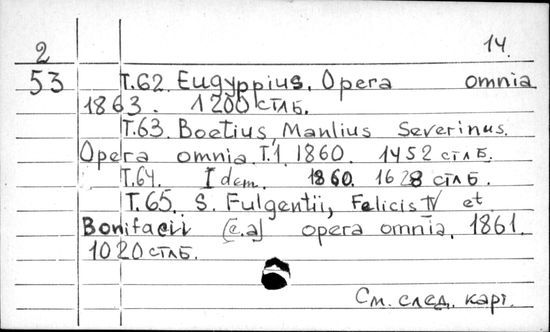 2
14.
53 Т.62. Eugyppius. Opera omnia
1863. 1200 стлб.
Т.63. Boetius, Manlius Severinus.
Opera omnia. T.1. 1860. 1452 стлб.
Т.64. Idem. 1860. 1628 стлб.
Т.65. S. Fulgentii, Felicis IV et
Bonifacii [e.a] opera omnia. 1861.
1020 стлб.
См. след. карт.